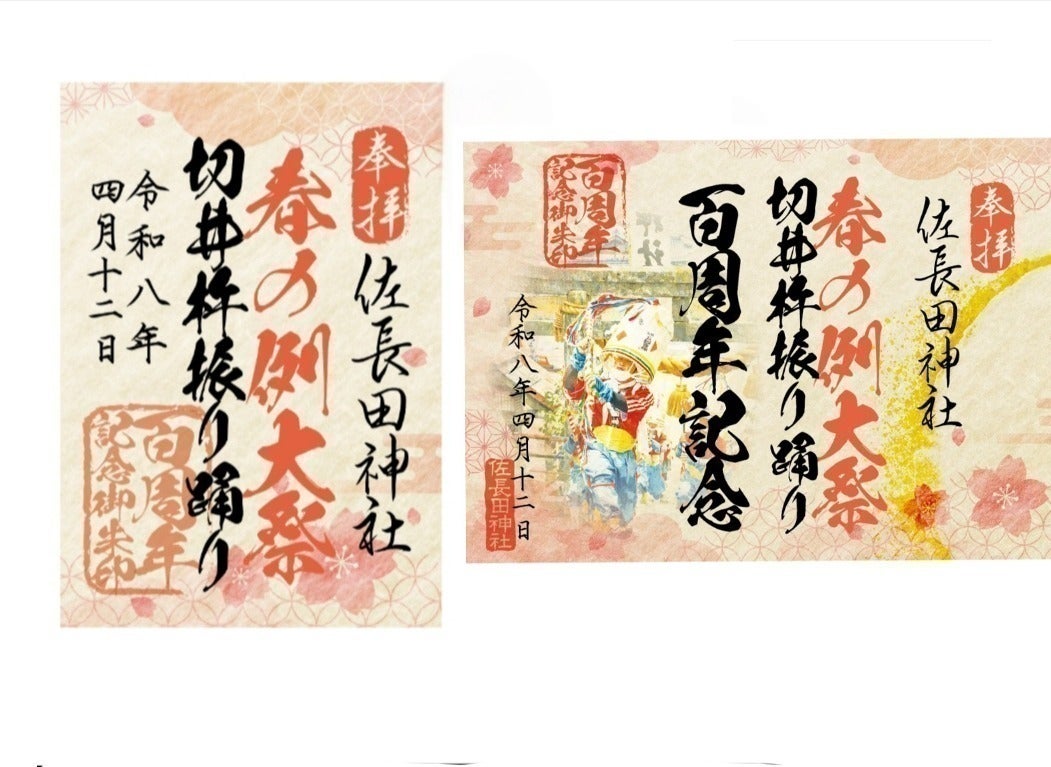 奉拝
佐長田神社
春の例大祭
切井杵振り踊り
令和八年
四月十二日
百周年
記念御朱印
奉拝
佐長田神社
春の例大祭
切井杵振り踊り
百周年記念
百周年
記念御朱印
令和八年四月十二日
佐長田神社